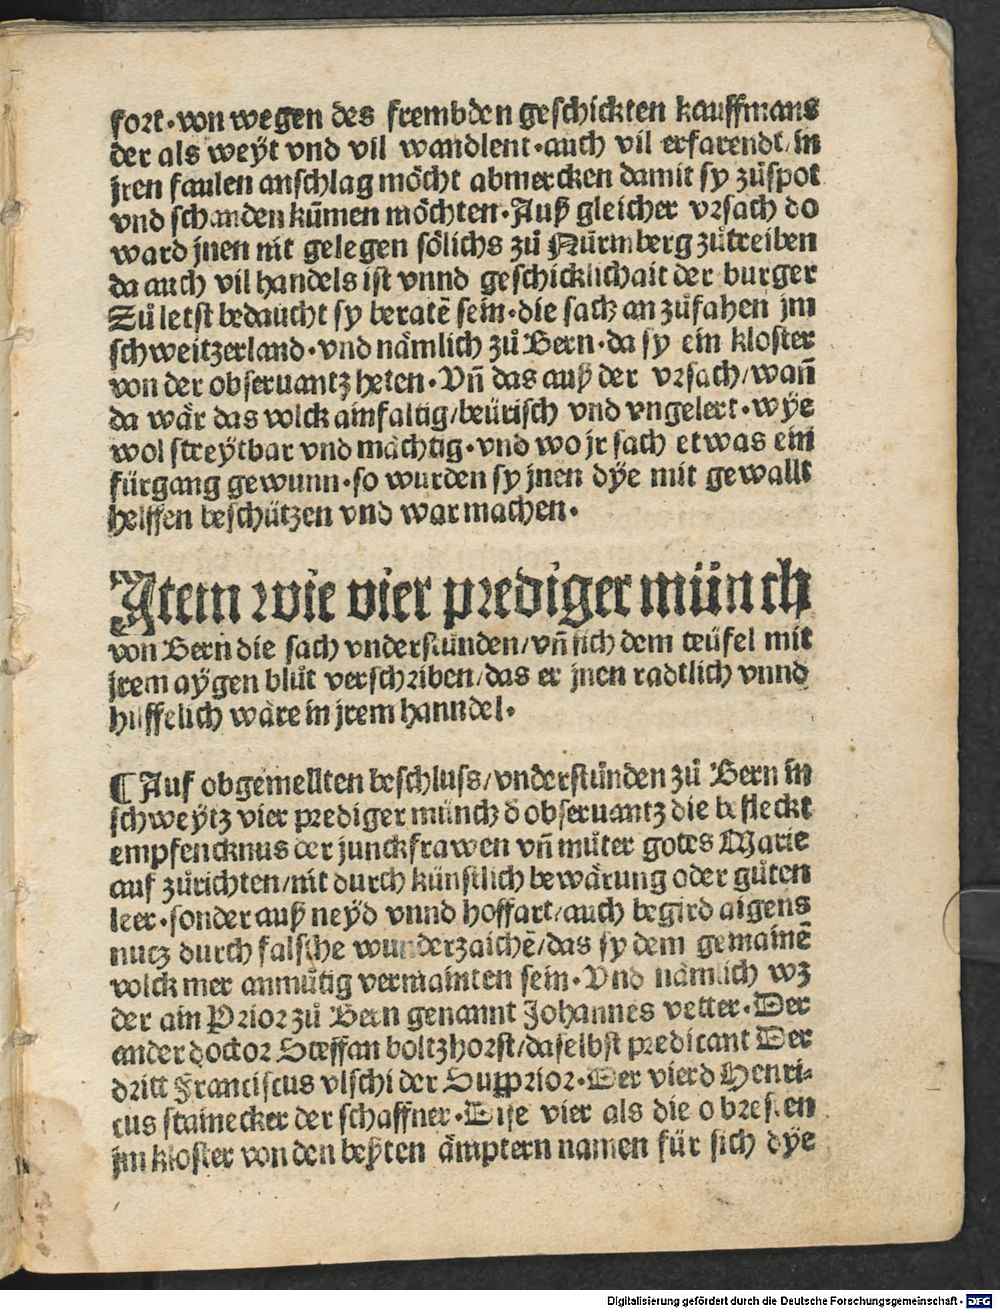 fort·von wegen des frembden geschickten kauffmans
der als weÿt vnd vil wandlent·auch vil erfarendt/in
jren faulen anschlag möcht abmercken damit sy zůspot
vnd schanden kũmen möchten·Auß gleicher vrsach do
ward jnen nit gelegen sölichs zů Nürmberg zůtreiben
da auch vil handels ist vnnd geschicklichait der burger
Zů letst bedaucht sy beratẽ sein·die sach an zůfahen jm
schweitzerland·vnd nämlich zů Bern·da sy ein kloster
von der obseruantz heten·Vñ das auß der vrsach/wañ
da wär das volck ainfaltig/beürisch vnd vngelert·wÿe
wol streÿtbar vnd mächtig·vnd wo jr sach etwas ein
fürgang gewunn·so wurden sy jnen dÿe mit gewallt
helffen beschützen vnd war machen·
Item wie vier prediger münch
von Bern die sach vnderstůnden/vñ sich dem teüfel mit
jrem aÿgen blůt verschriben/das er jnen radtlich vnnd
hilffelich wäre in jrem hanndel·
¶ Auf obgemellten beschluss/vnderstůnden zů Bern in
schweÿtz vier prediger münch d obseruantz die befleckt
empfencknus der junckfrawen vñ můter gotes Marie
auf zůrichten/nit durch künstlich bewärung oder gůten
leer·sonder auß neÿd vnnd hoffart/auch begird aigens
nutz durch falsche wunderzaichẽ/das sy dem gemainẽ
volck mer anmůtig vermainten sein·Vnd nämlich wz
der ain Prior zů Bern genannt Johannes vetter·Der
ander doctor Steffan boltzhorst/daselbst predicant Der
dritt Franciscus vlschi der Supprior·Der vierd Henri-
cus stainecker der schaffner·Dise vier als die obresten
jm kloster von den beÿten ämptern namen für sich dÿe
Digitalisierung gefördert durch die Deutsche Forschungsgemeinschaft - DFG